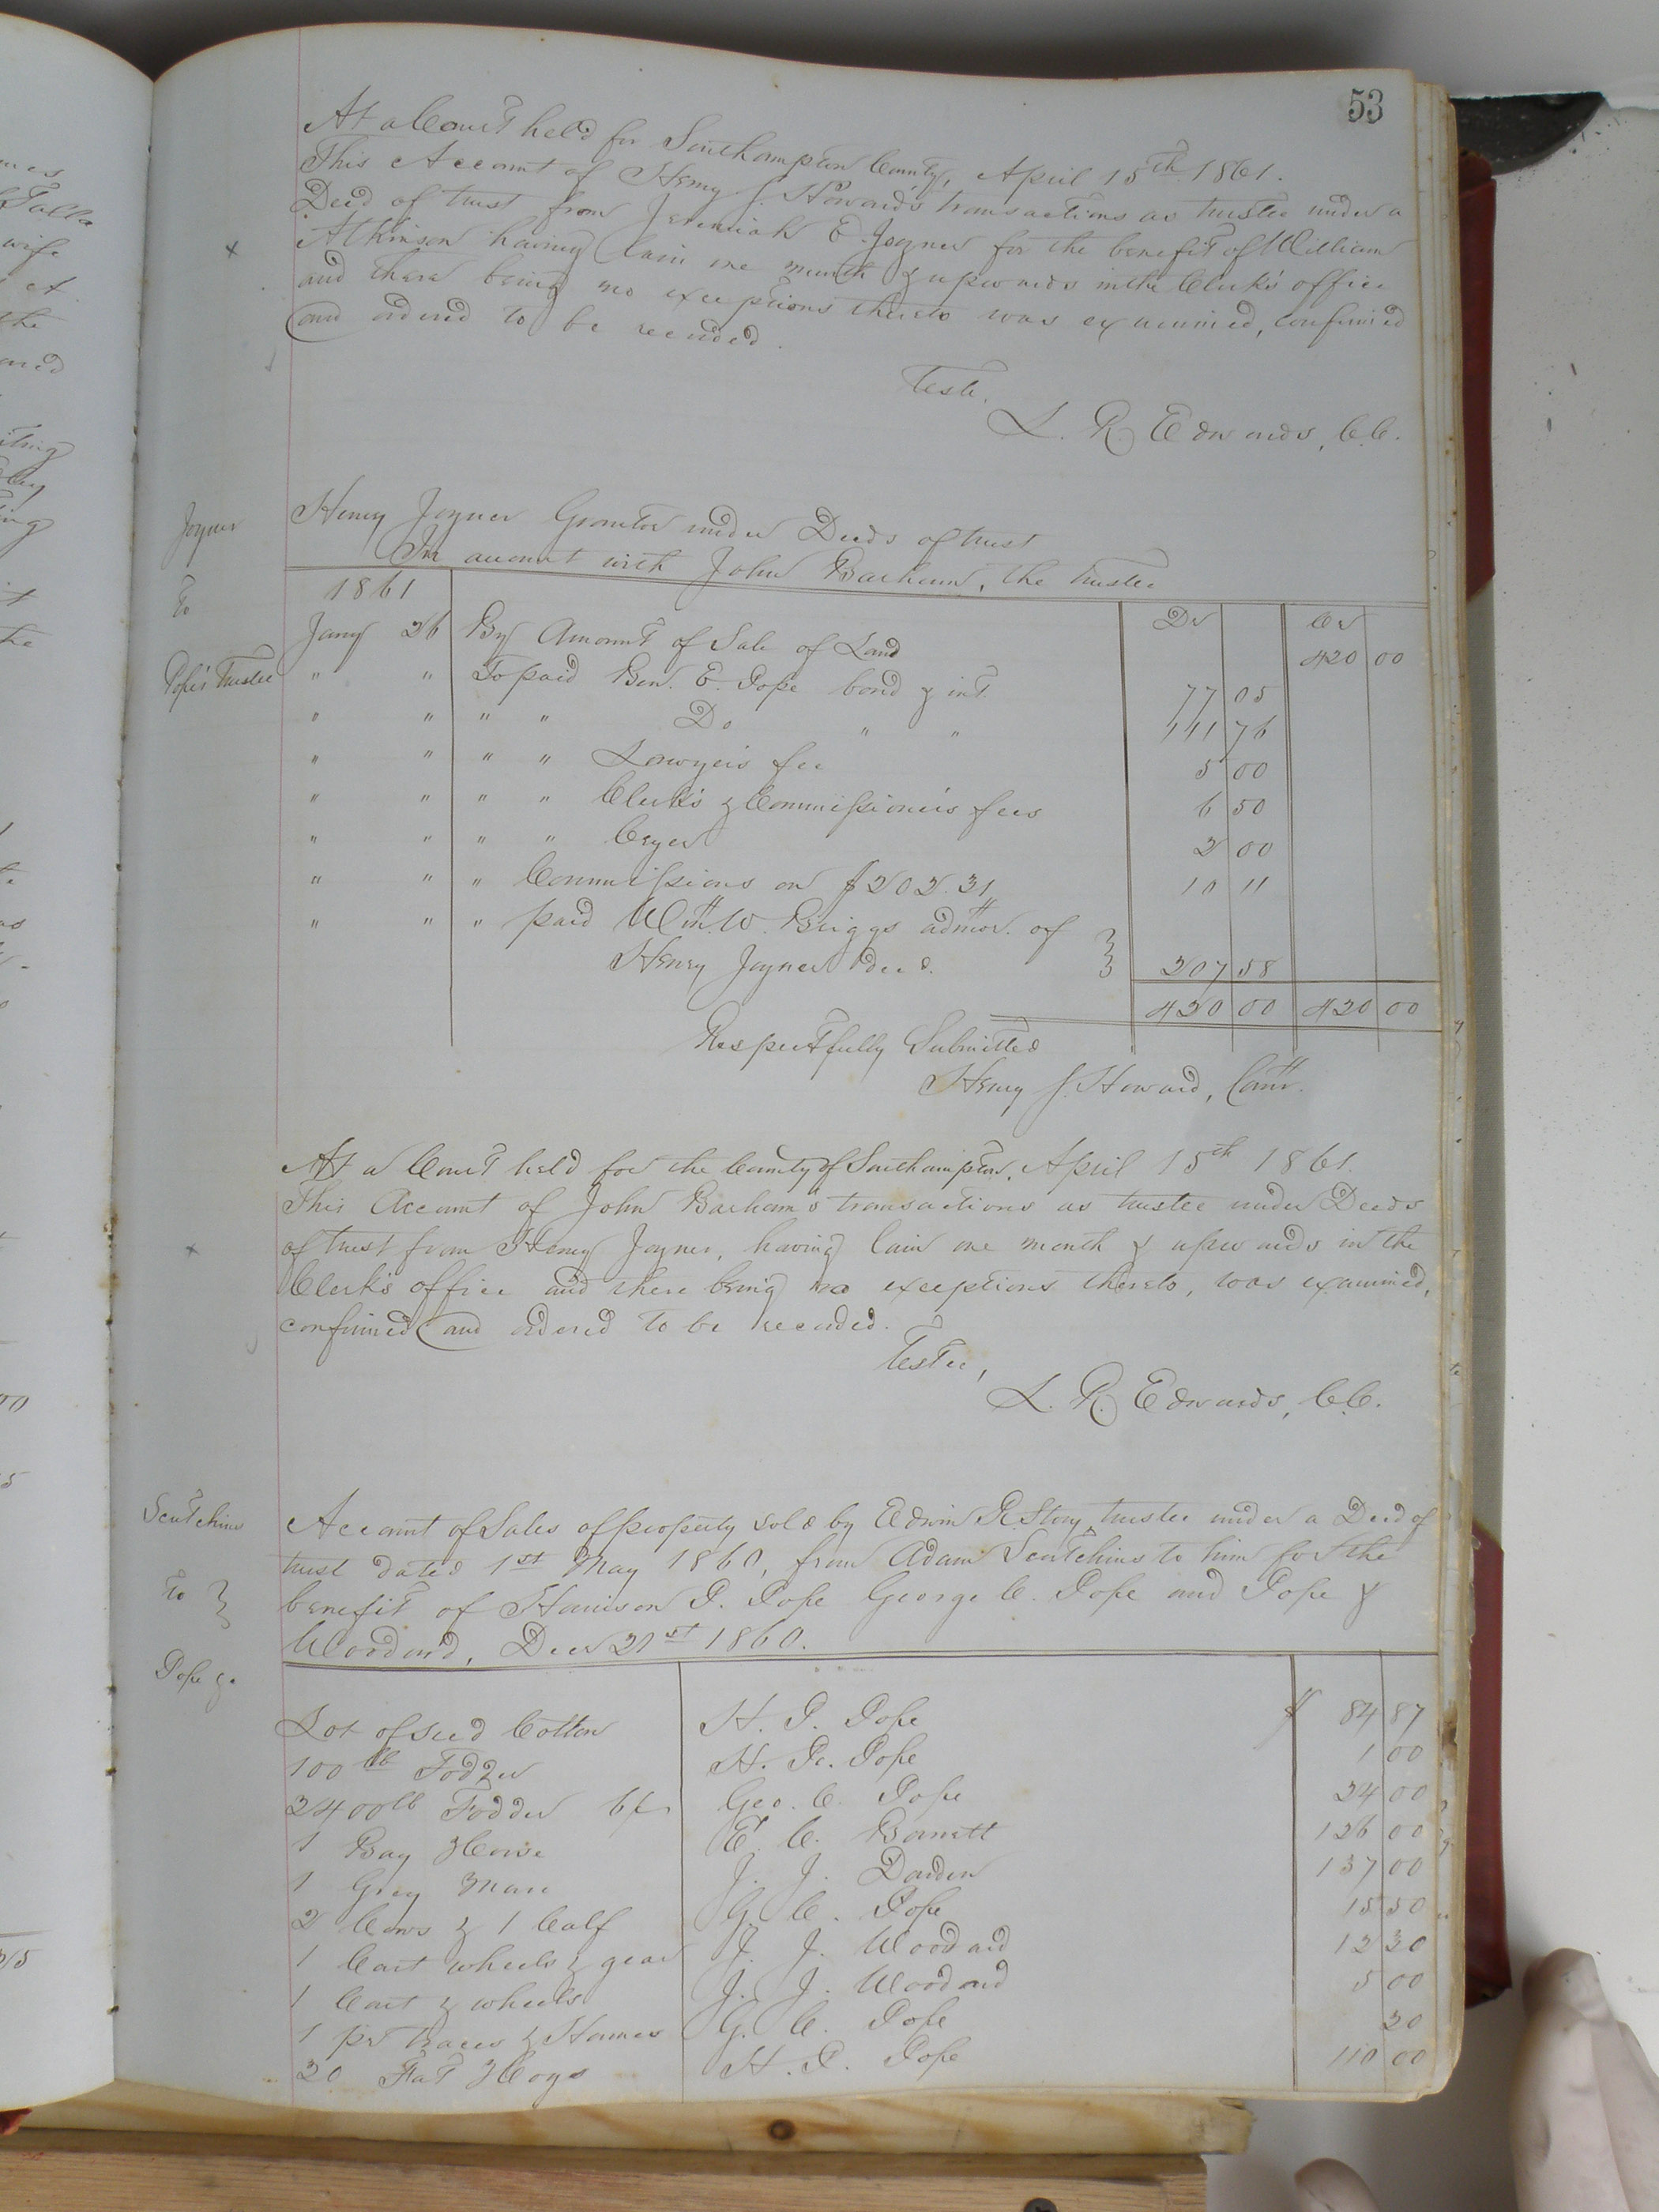 53
At a Court held for Southampton County, April 15th 1861.
This Account of Henry J. Howard's transactions as trustee under a
Deed of trust from Jeremiah E. Joyner for the benefit of William
Atkinson having lain one month & upwards in the Clerk's office
and there being no exceptions thereto was examined, confirmed
and ordered to be recorded.
Teste,
L. R. Edwards, C.C.
Joyner
To
Pope's Trustee
Henry Joyner Grantor under Deeds of trust
In account with John Barham, the trustee
1861 Dr Cr
Jany 26 By Amount of Sale of Land 420 00
" " To paid Ben. E. Pope bond & int. 77 05
" " " " Do " " 111 76
" " " " Lawyer's fee 5 00
" " " " Clerk's & Commissioner's fees 6 50
" " " " Cryer 2 00
" " " Commissions on $202.31 10 11
" " " paid Wm. W. Briggs admor. of
Henry Joyner decd. 207 58
420 00 420 00
Respectfully Submitted
Henry J. Howard, Comr.
At a Court held for the County of Southampton, April 15th 1861.
This Account of John Barham's transactions as trustee under Deeds
of trust from Henry Joyner, having lain one month & upwards in the
Clerk's office and there being no exceptions thereto, was examined,
confirmed and ordered to be recorded.
Teste,
L. R. Edwards, C.C.
Scutchins
To
Pope &c
Account of Sales of property sold by Edwin R. Story trustee under a Deed of
trust dated 1st May 1860, from Adam Scutchins to him for the
benefit of Harrison P. Pope George C. Pope and Pope &
Woodard, Decr 21st 1860.
Lot of seed Cotton H. P. Pope $ 84 87
100 lb Fodder H. P. Pope 1 00
2400 lb Fodder Geo. C. Pope 24 00
1 Bay Horse E. C. Barrett 126 00
1 Grey Mare J. J. Darden 137 00
2 Cows & 1 Calf G. C. Pope 15 50
1 Cart wheels & gear J. J. Woodard 12 30
1 Cart & wheels J. J. Woodard 5 00
1 pr traces & Hames G. C. Pope 30
20 Fat Hogs H. P. Pope 110 00